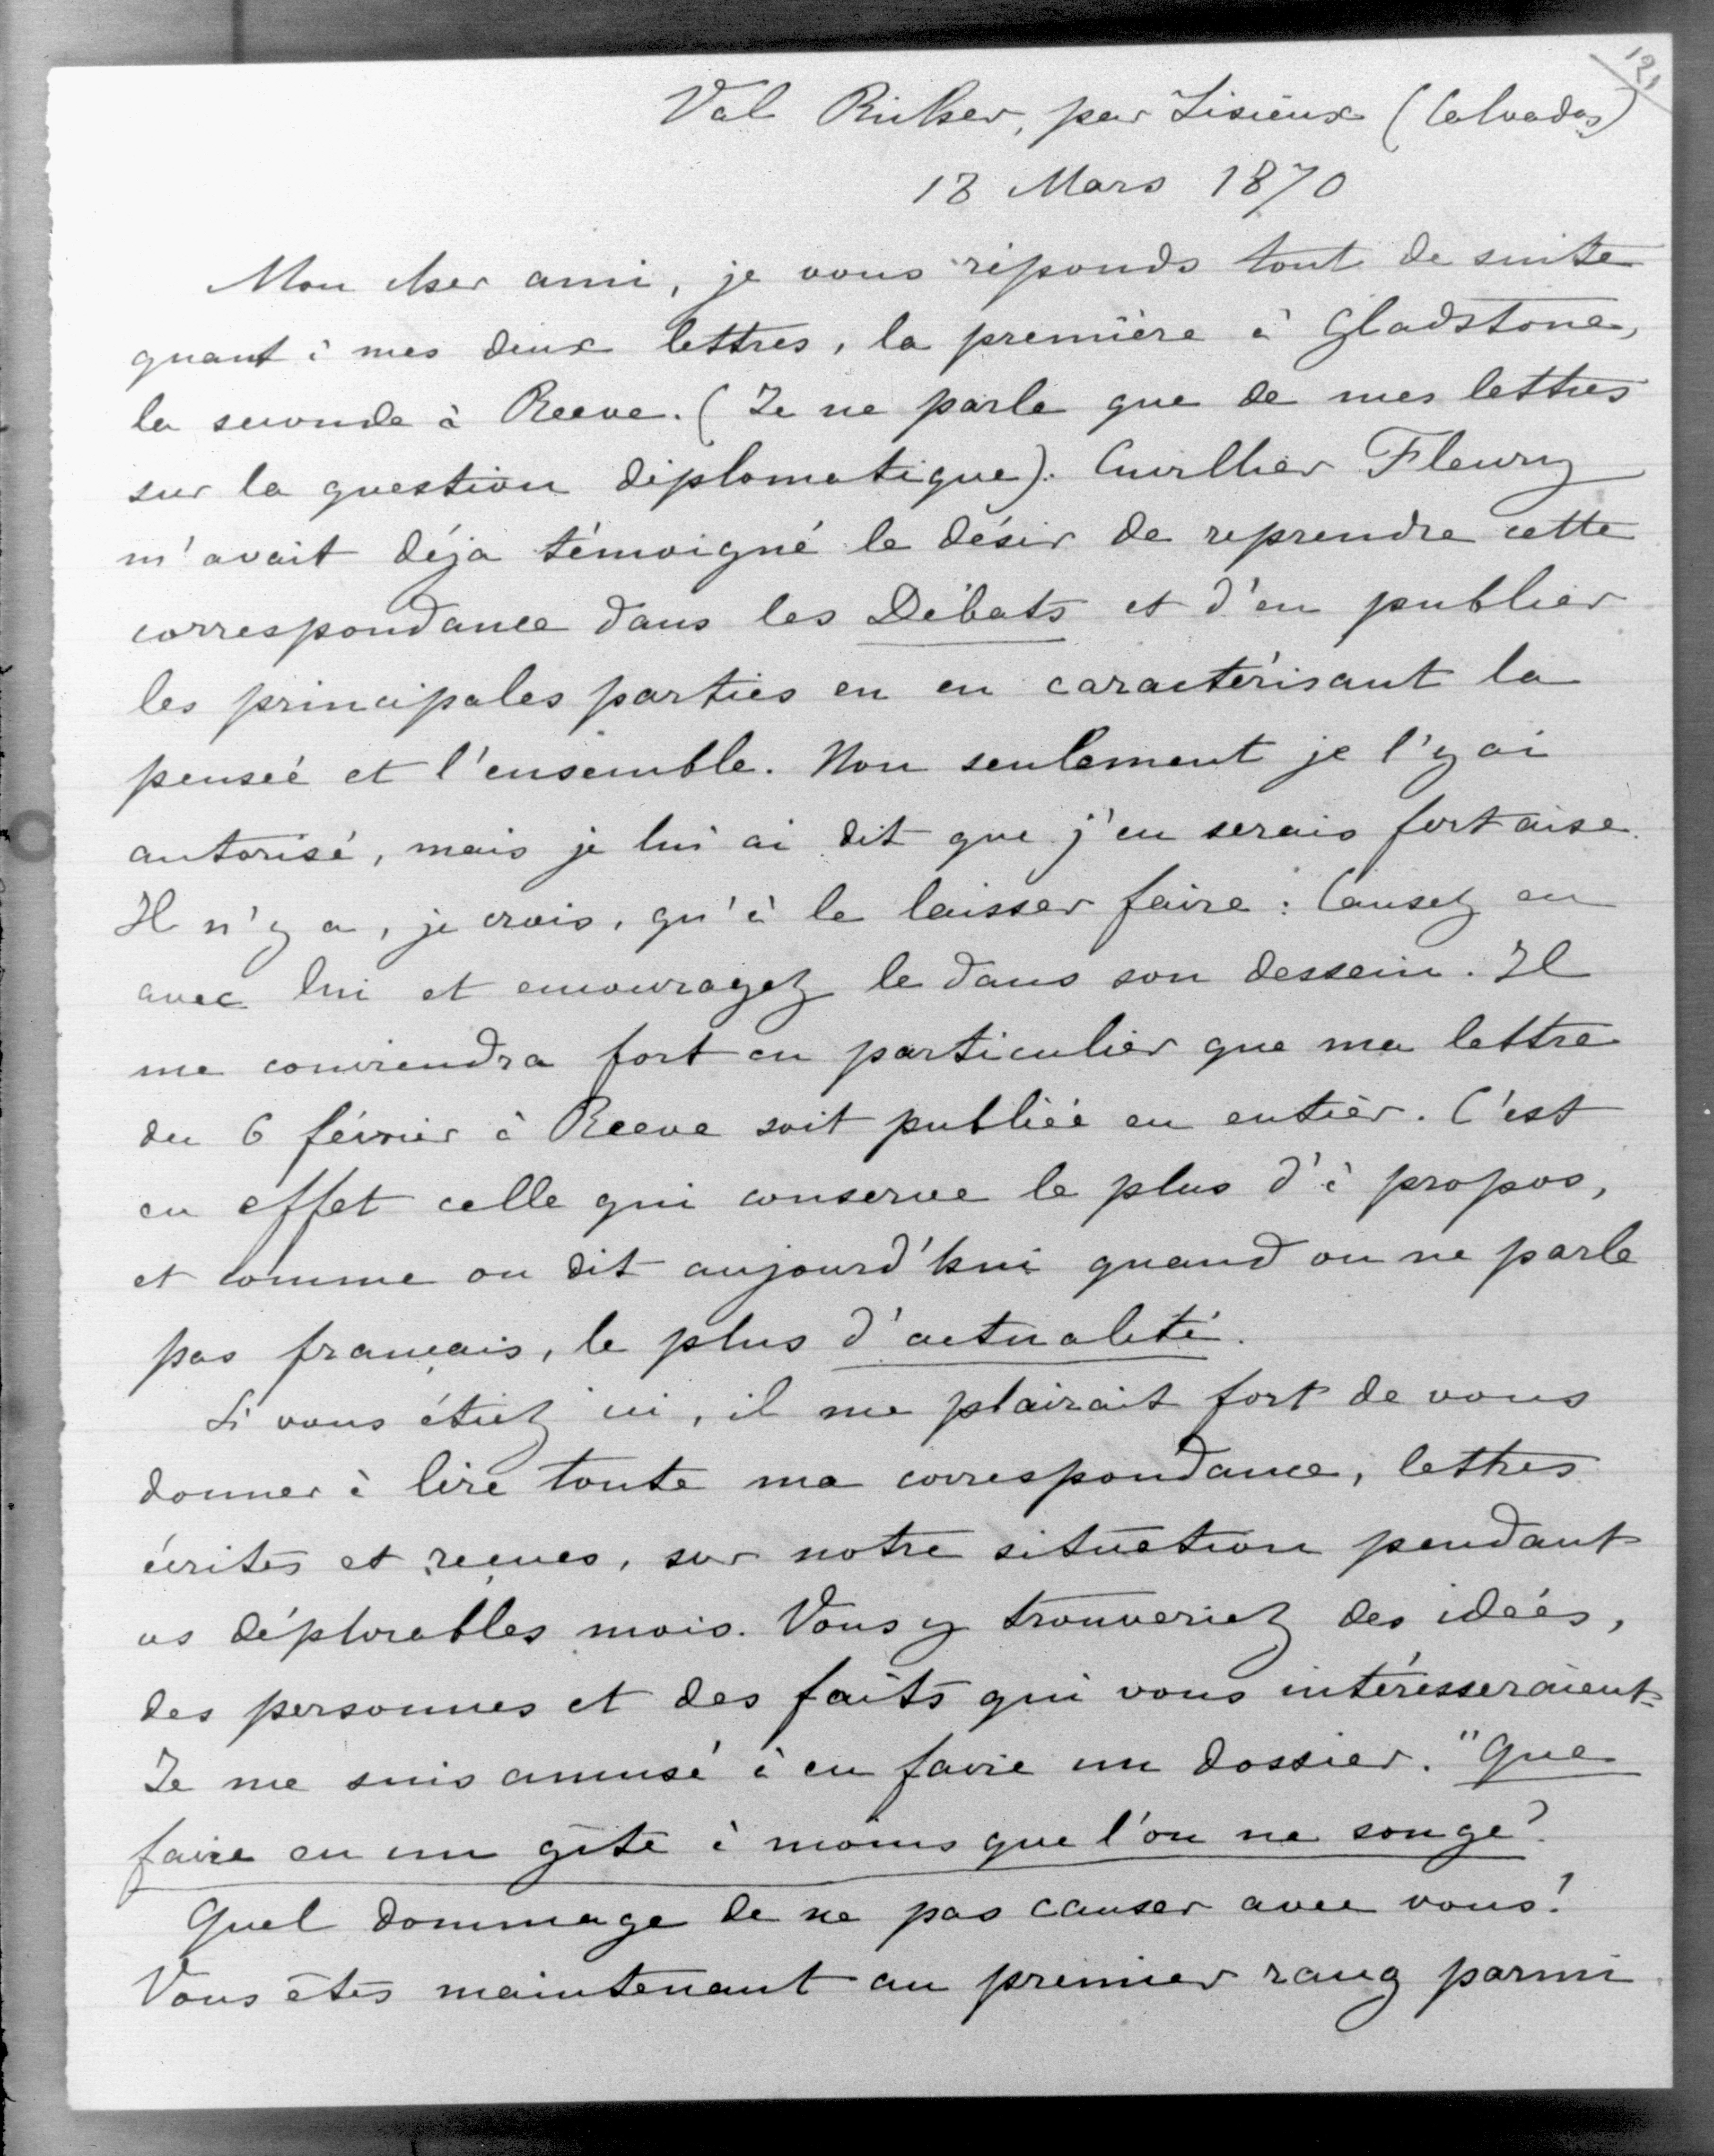 121
Val Richer, par Lisieux (Calvados)
18 Mars 1870
Mon cher ami, je vous réponds tout de suite
quant à mes deux lettres, la première à Gladstone,
la seconde à Reeve. (Je ne parle que de mes lettres
sur la question diplomatique). Cuvillier Fleury
m'avait déja témoigné le désir de reprendre cette
correspondance dans les Débats et d'en publier
les principales parties en en caractérisant la
pensée et l'ensemble. Non seulement je l'y ai
autorisé, mais je lui ai dit que j'en serais fort aise.
Il n'y a, je crois, qu'à le laisser faire : Causez en
avec lui et encouragez le dans son dessein. Il
me conviendra fort en particulier que ma lettre
du 6 février à Reeve soit publiée en entier. C'est
en effet celle qui conserve le plus d'à propos,
et comme on dit aujourd'hui quand on ne parle
pas français, le plus d'actualité.
Si vous étiez ici, il me plairait fort de vous
donner à lire toute ma correspondance, lettres
écrites et reçues, sur notre situation pendant
ces déplorables mois. Vous y trouveriez des idées,
des personnes et des faits qui vous intéresseraient.
Je me suis amusé à en faire un dossier. "Que
faire en un gîte à moins que l'on ne songe?
Quel dommage de ne pas causer avec vous!
Vous êtes maintenant au premier rang parmi